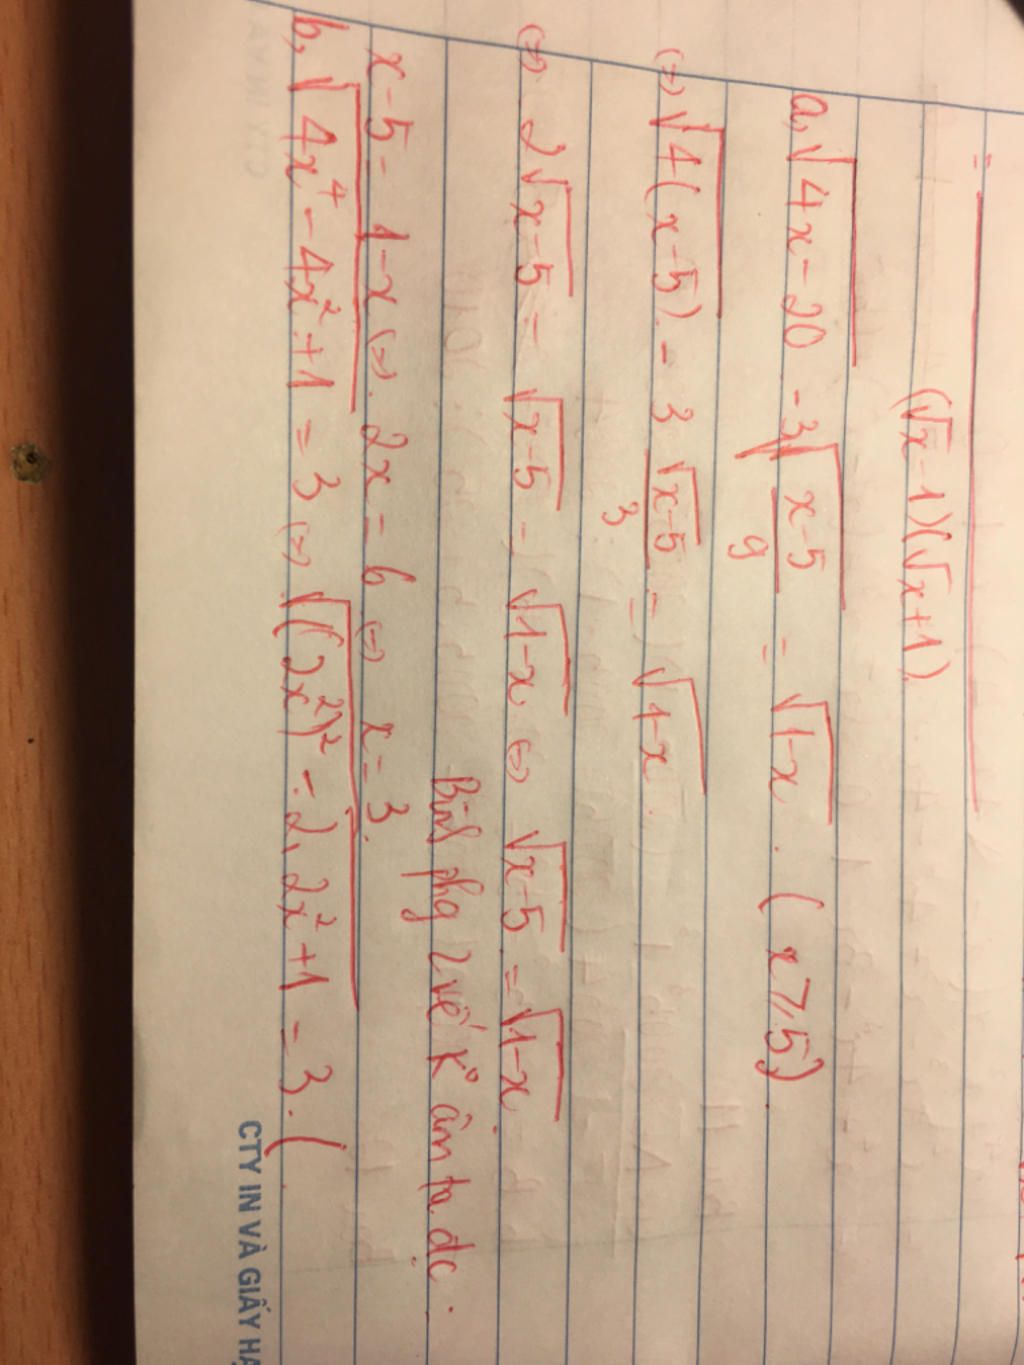 (√x-1)(√x+1)
a, √(4x-20) - 3√((x-5)/9) = √(1-x). (x ≥ 5)
(=) √(4(x-5)) - 3 √(x-5)/3 = √(1-x).
(=) 2√(x-5) = √(x-5) - √(1-x) (=) √(x-5) = √(1-x).
Bình phg 2 vế K° âm ta đc:
x-5 = 1-x (=) 2x = 6 (=) x = 3.
b, √(4x⁴ - 4x² + 1) = 3 (=) √((2x²)² - 2. 2x² + 1) = 3. (
CTY IN VÀ GIẤY